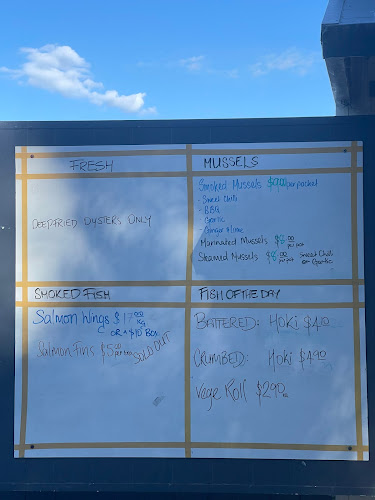 FRESH
DEEPFRIED OYSTERS ONLY
MUSSELS
Smoked Mussels $9.00 per packet
- Sweet Chilli
- BBQ
- Garlic
- Ginger & Lime
Marinated Mussels $8.00 per pot
Steamed Mussels $8.00 per pot Sweet Chilli or Garlic
SMOKED FISH
Salmon Wings $17.00 KG
OR A $10 BAG
Salmon Fins $5.00 SOLD OUT
FISH OF THE DAY
BATTERED: HOKI $4.00
CRUMBED: HOKI $4.90
Vege Roll $2.90